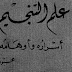 علم التنجيم
أسراره وأوهامه